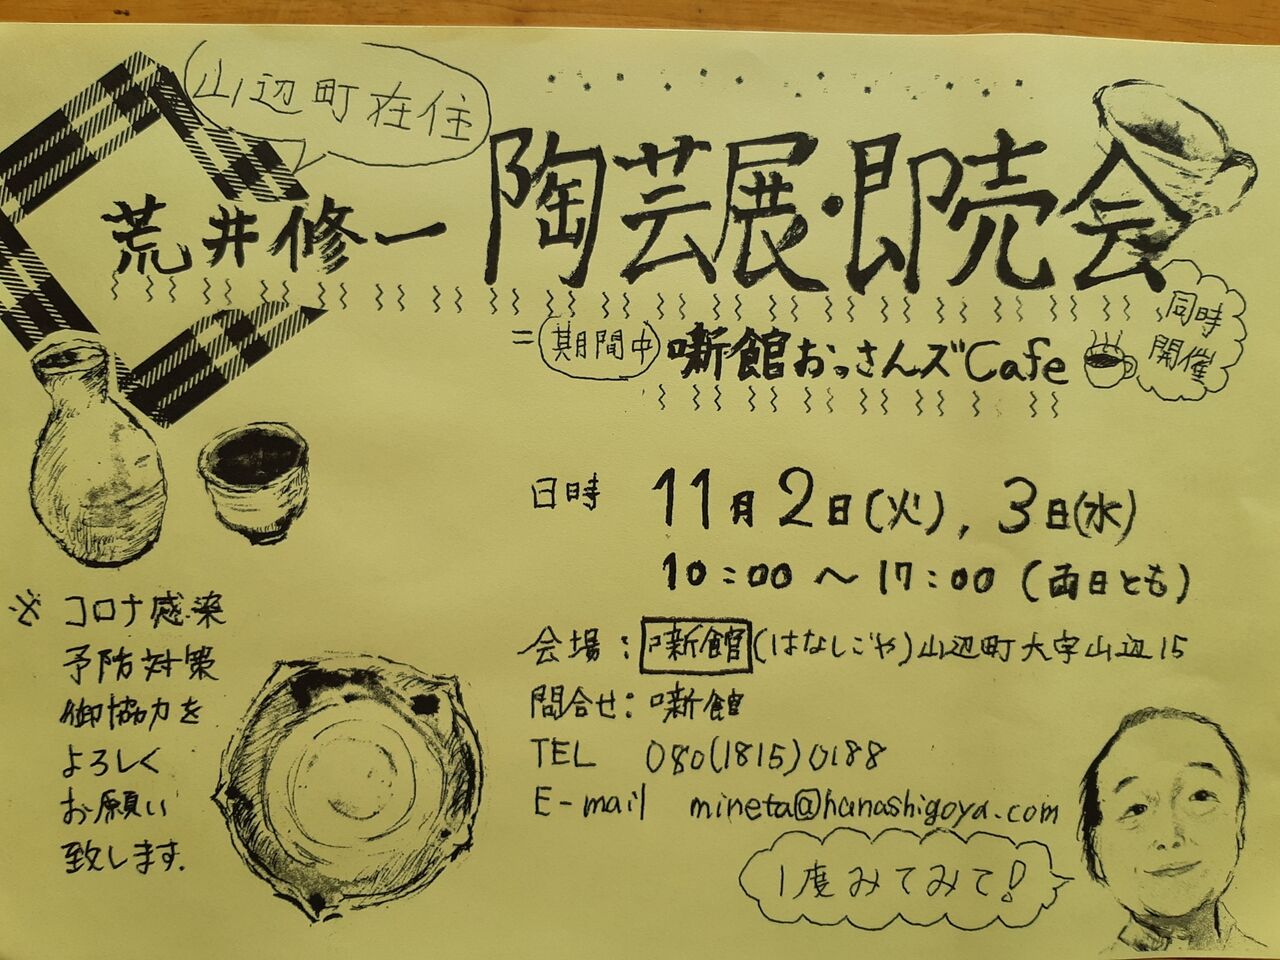 山辺町在住
荒井修一 陶芸展・即売会
=期間中 噺館おっさんズCafe
同時
開催
日時 11月2日(火), 3日(水)
10:00～17:00(両日とも)
会場:噺館(はなしごや)山辺町大字山辺15
問合せ:噺館
TEL 080(1815)0188
E-mail mineta@hanashigoya.com
※コロナ感染
予防対策
御協力を
よろしく
お願い
致します.
1度みてみて!